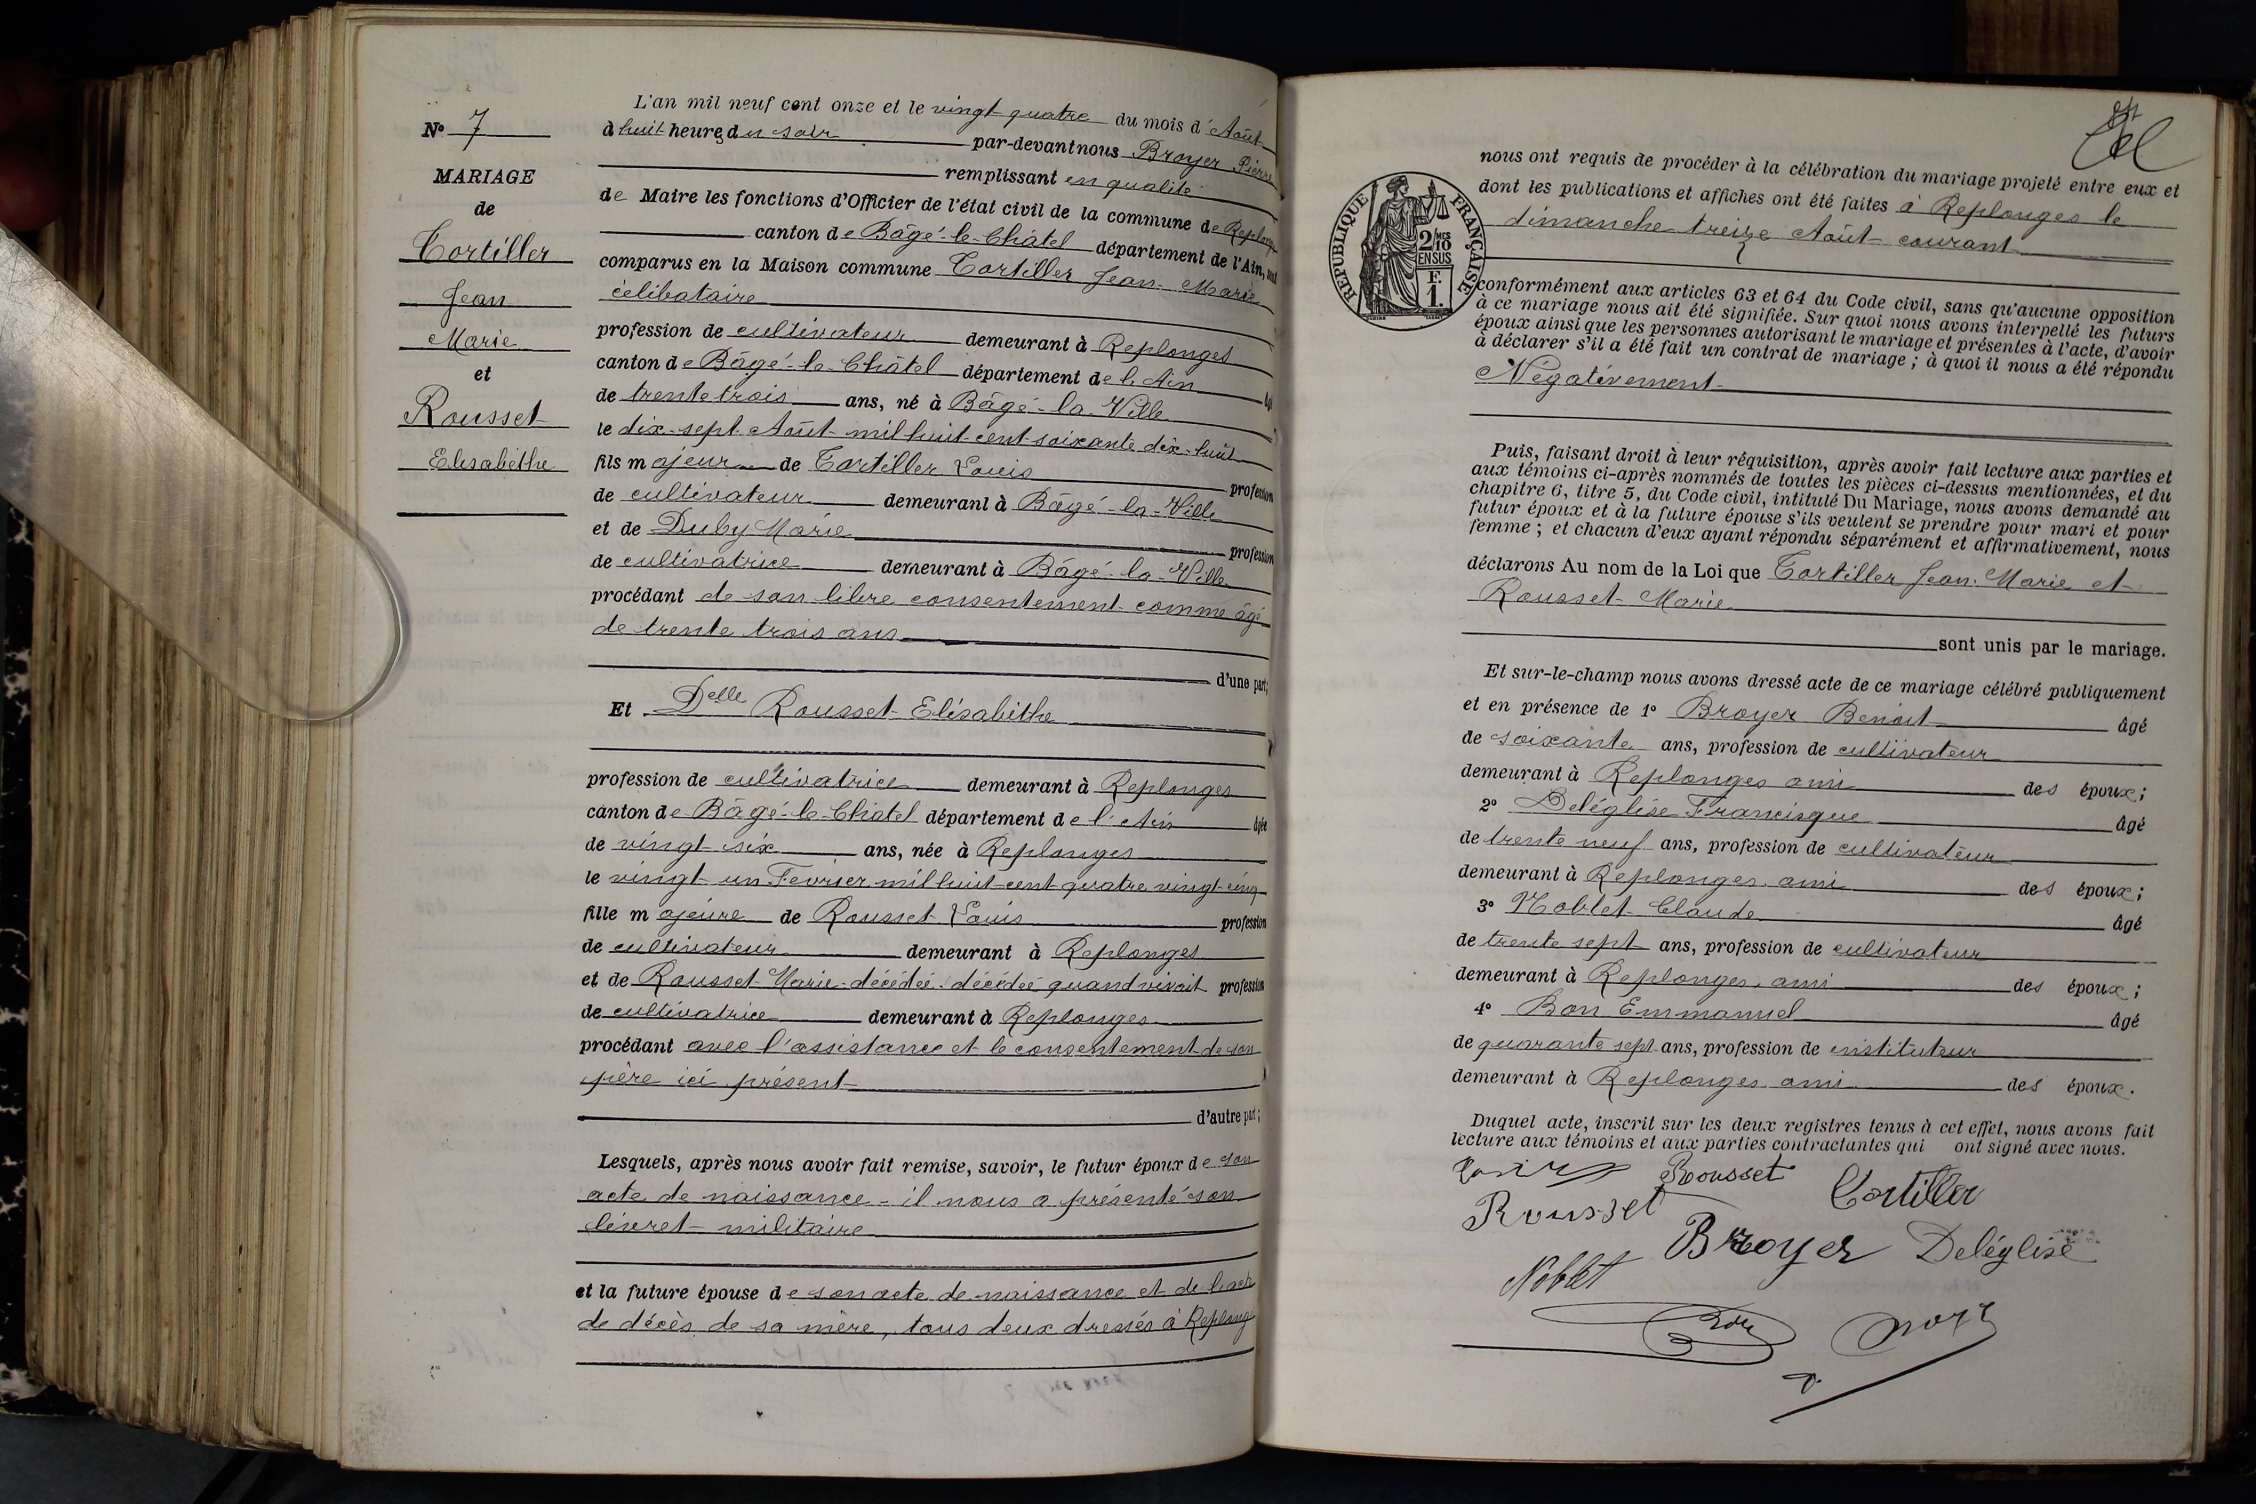 N° 7
MARIAGE
de
Tortiller
Jean
Marie
et
Rousset
Elisabéthe
L'an mil neuf cent onze et le vingt quatre du mois d'Août
à huit heures du soir par-devant nous Broyer Pierre
remplissant en qualité
de Maire les fonctions d'Officier de l'état civil de la commune de Replonges
canton de Bâgé-le-Châtel département de l'Ain, ont
comparus en la Maison commune Tortiller Jean-Marie
célibataire
profession de cultivateur demeurant à Replonges
canton de Bâgé-le-Châtel département de l'Ain âgé
de trente trois ans, né à Bâgé-la-Ville
le dix-sept Août mil huit cent soixante dix-huit
fils majeur de Tortiller Louis profession
de cultivateur demeurant à Bâgé-la-Ville
et de Duby Marie profession
de cultivatrice demeurant à Bâgé-la-Ville
procédant de son libre consentement comme âgé
de trente trois ans
d'une part;
Et Delle Rousset Elisabéthe
profession de cultivatrice demeurant à Replonges
canton de Bâgé-le-Châtel département de l'Ain âgée
de vingt six ans, née à Replonges
le vingt un Février mil huit cent quatre vingt cinq
fille majeure de Rousset Louis profession
de cultivateur demeurant à Replonges
et de Rousset Marie décédée décédée quand vivait profession
de cultivatrice demeurant à Replonges
procédant avec l'assistance et le consentement de son
père ici présent
d'autre part;
Lesquels, après nous avoir fait remise, savoir, le futur époux de son
acte de naissance - il nous a présenté son
livret militaire
et la future épouse de son acte de naissance et de l'acte
de décès de sa mère, tous deux dressés à Replonges
nous ont requis de procéder à la célébration du mariage projeté entre eux et
dont les publications et affiches ont été faites à Replonges le
dimanche treize Août courant
RÉPUBLIQUE FRANÇAISE
2/10 MES
EN SUS
F.
1.
conformément aux articles 63 et 64 du Code civil, sans qu'aucune opposition
à ce mariage nous ait été signifiée. Sur quoi nous avons interpellé les futurs
époux ainsi que les personnes autorisant le mariage et présentes à l'acte, d'avoir
à déclarer s'il a été fait un contrat de mariage; à quoi il nous a été répondu
Négativement
Puis, faisant droit à leur réquisition, après avoir fait lecture aux parties et
aux témoins ci-après nommés de toutes les pièces ci-dessus mentionnées, et du
chapitre 6, titre 5, du Code civil, intitulé Du Mariage, nous avons demandé au
futur époux et à la future épouse s'ils veulent se prendre pour mari et pour
femme; et chacun d'eux ayant répondu séparément et affirmativement, nous
déclarons Au nom de la Loi que Tortiller Jean-Marie et
Rousset Marie
sont unis par le mariage.
Et sur-le-champ nous avons dressé acte de ce mariage célébré publiquement
et en présence de 1° Broyer Benoit âgé
de soixante ans, profession de cultivateur
demeurant à Replonges ami des époux;
2° Deléglise Francisque âgé
de trente neuf ans, profession de cultivateur
demeurant à Replonges ami des époux;
3° Noblet Claude âgé
de trente sept ans, profession de cultivateur
demeurant à Replonges ami des époux;
4° Bon Emmanuel âgé
de quarante sept ans, profession de instituteur
demeurant à Replonges ami des époux.
Duquel acte, inscrit sur les deux registres tenus à cet effet, nous avons fait
lecture aux témoins et aux parties contractantes qui ont signé avec nous.
Rousset
Rousset Tortiller
Broyer Deléglise
Noblet
Bon